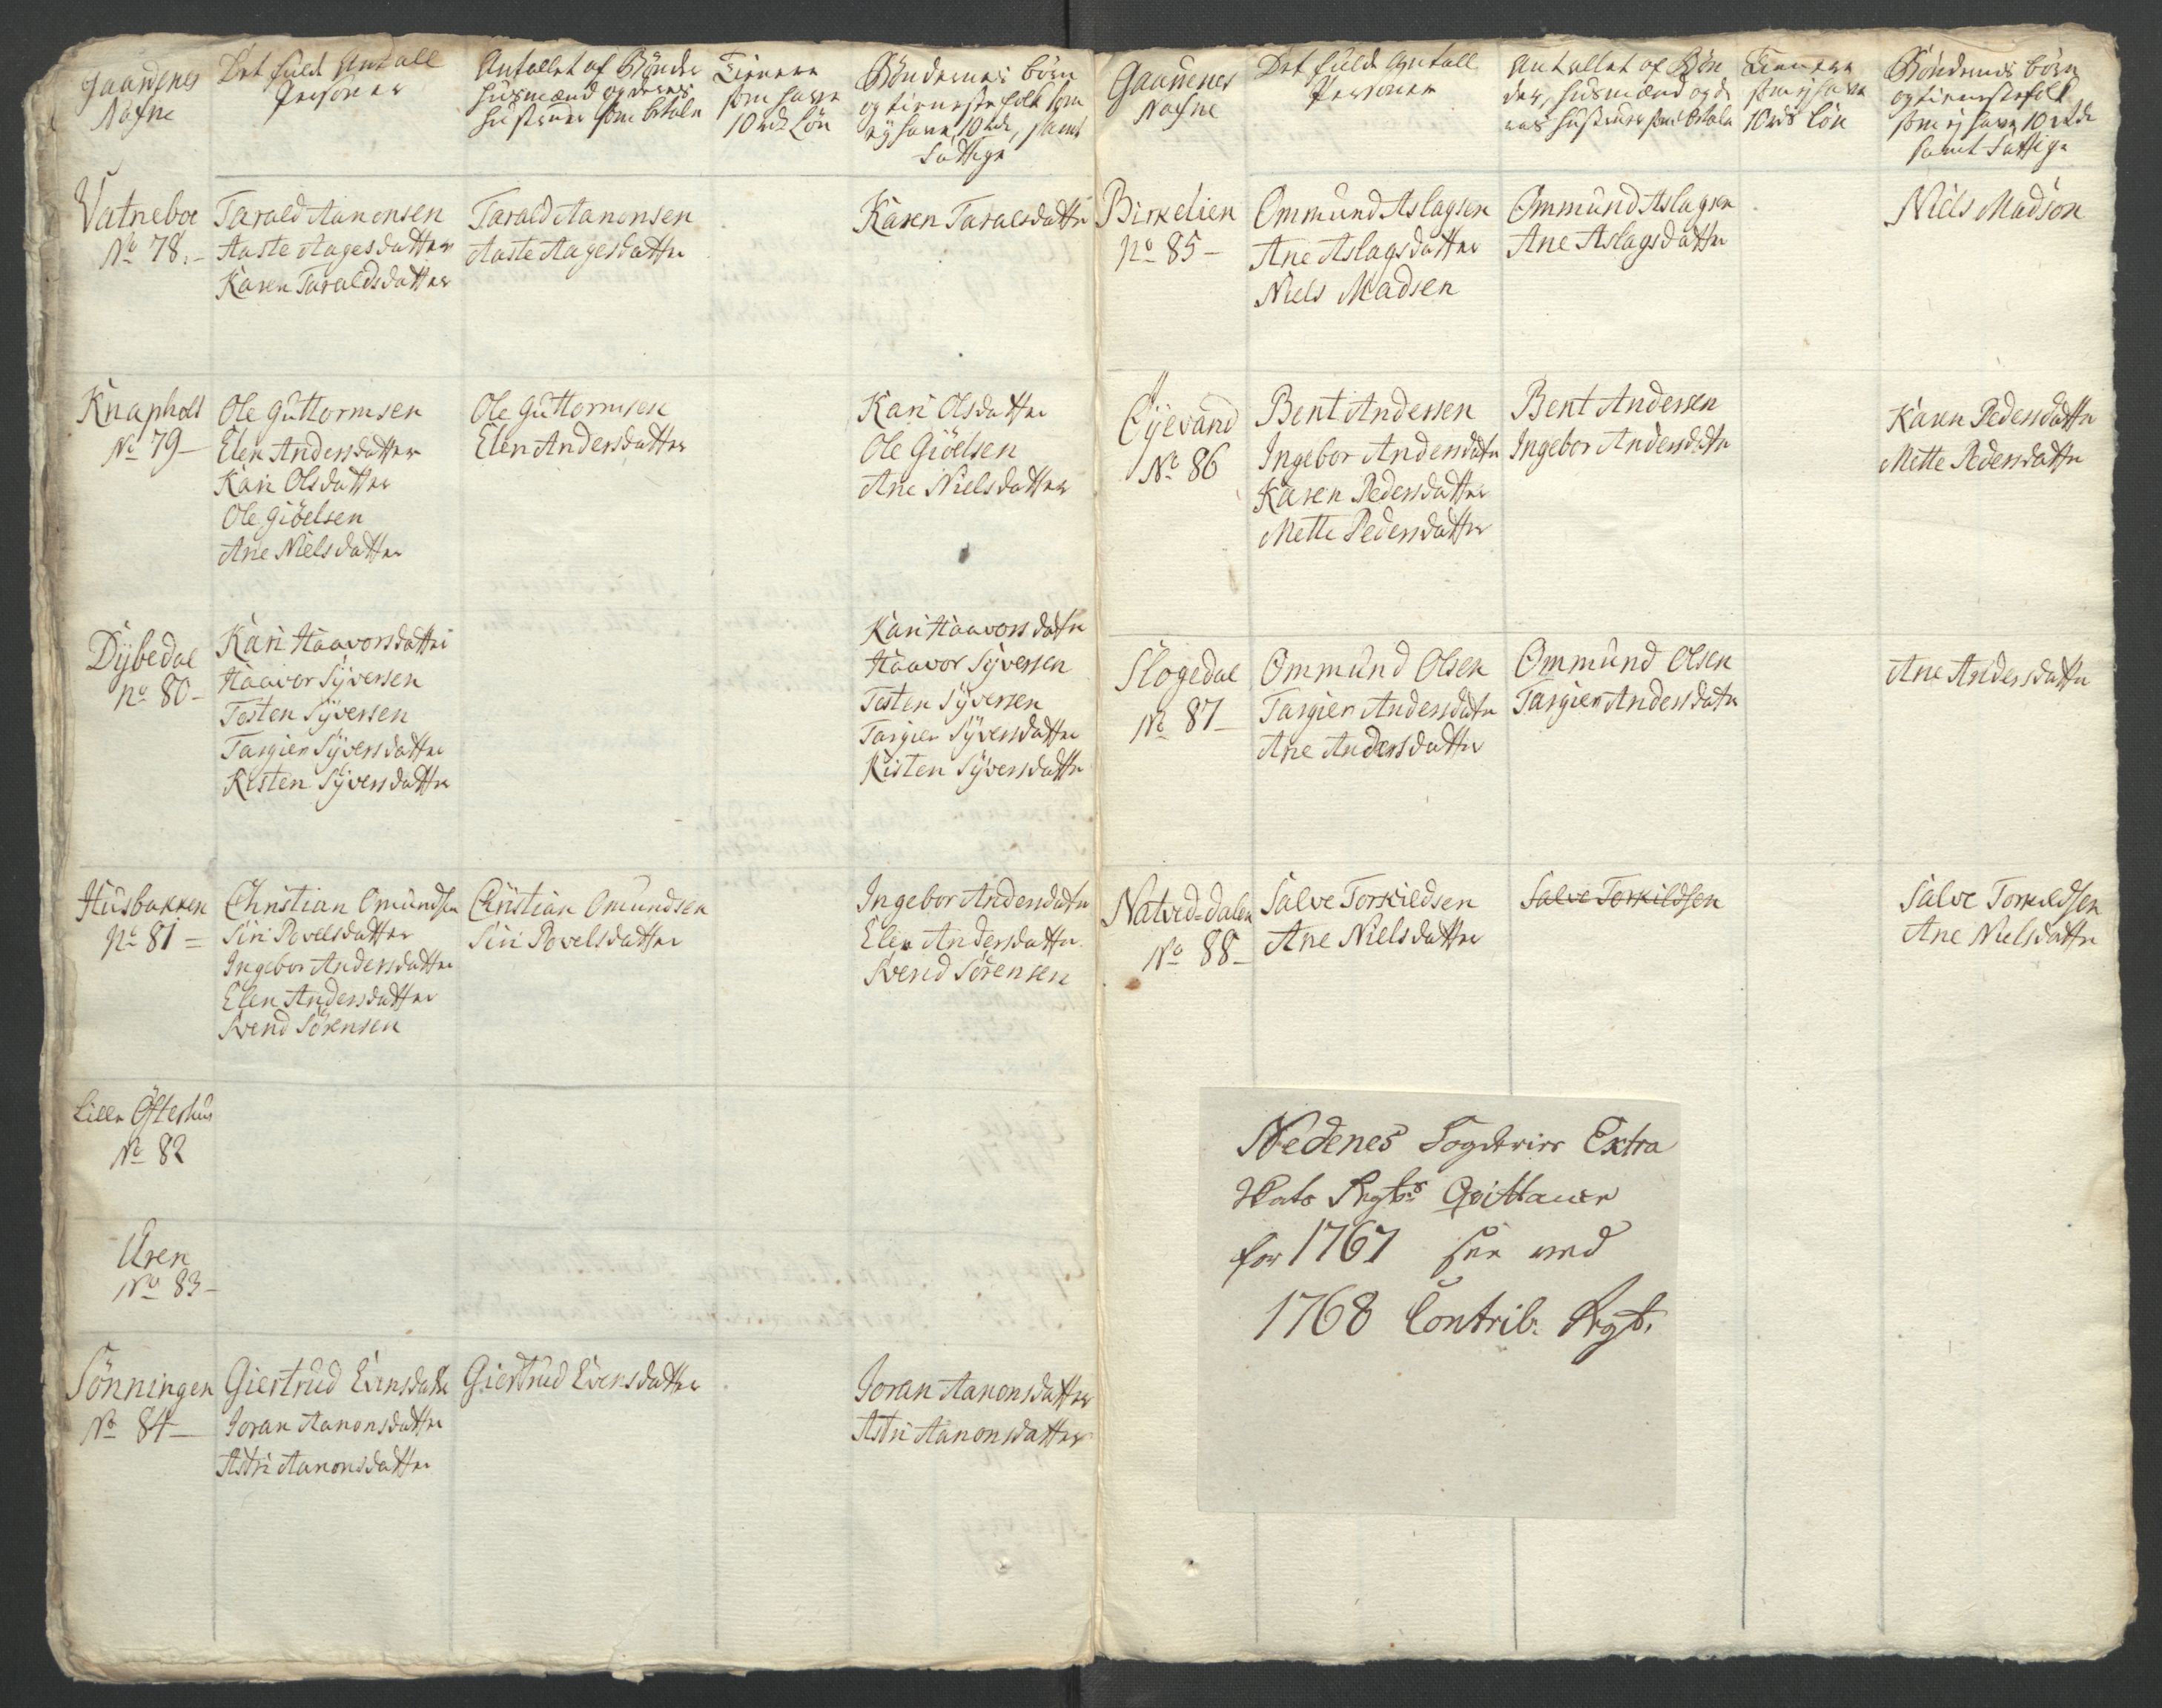 Gaardenes
Nafne
Det fulde Antall
Personer
Antallet af Bønder
Husmænd og deres
Hustruer som betale
Tienere
som have
10 rdr Løn
Bøndernes børn
og tienestefolk som
ey have 10 rdr, samt
fattige
Vatneboe
No 78.-
Tarald Aanonsen
Aaste Aagesdatter
Karen Taraldsdatter
Tarald Aanonsen
Aaste Aagesdatter
Karen Taralsdatter
Knapholt
No 79-
Ole Guttormsen
Elen Andersdatter
Kari Olsdatter
Ole Giöelsen
Ane Nielsdatter
Ole Guttormsen
Elen Andersdatter
Kari Olsdatter
Ole Giöelsen
Ane Nielsdatter
Dÿbedal
No 80-
Kari Haavorsdatter
Haavor Sÿversen
Testen Sÿversen
Targier Sÿversdatter
Kisten Sÿversdatter
Kari Haavorsdatter
Haavor Sÿversen
Testen Sÿversen
Targier Sÿversdatter
Kisten Sÿversdatter
Husbakken
No 81=
Christian Omundsen
Siri Povelsdatter
Ingebor Andersdatter
Elen Andersdatter
Svend Sörensen
Christian Omundsen
Siri Povelsdatter
Ingebor Andersdatter
Elen Andersdatter
Svend Sörensen
Lille Österhus
No 82
Uren
No 83-
Sönningen
No 84-
Giertrud Evensdatter
Joran Aanonsdatter
Astri Aanonsdatter
Giertrud Evensdatter
Joran Aanonsdatter
Astri Aanonsdatter
Gaardenes
Nafne
Det fulde Antall
Personer
Antallet af Bøn
der, Husmænd og de
res Hustruer som betale
Tienere
som ej have
10 rdr Løn
Bøndernes børn
og tienestefolk
som ej have 10 rdr
samt fattige
Birkelien
No 85-
Ommund Aslagsen
Ane Aslagsdatter
Niels Madsen
Ommund Aslagsen
Ane Aslagsdatter
Niels Madsön
Öÿevand
No 86
Bent Andersen
Ingebor Andersdatter
Karen Pedersdatter
Mette Pedersdatter
Bent Andersen
Ingebor Andersdatter
Karen Pedersdatter
Mette Pedersdatter
Slogedal
No 87-
Ommund Olsen
Targier Andersdatter
Ane Andersdatter
Ommund Olsen
Targier Andersdatter
Ane Andersdatter
Natved-dalen
No 88-
Salve Torkildsen
Ane Nielsdatter
Salve Torkildsen
Salve Torkildsen
Ane Nielsdatter
Nedenes Fogderies Extra
Skats Regtbs Qvittancer
for 1767 see ved
1768 Contrib. Regt.